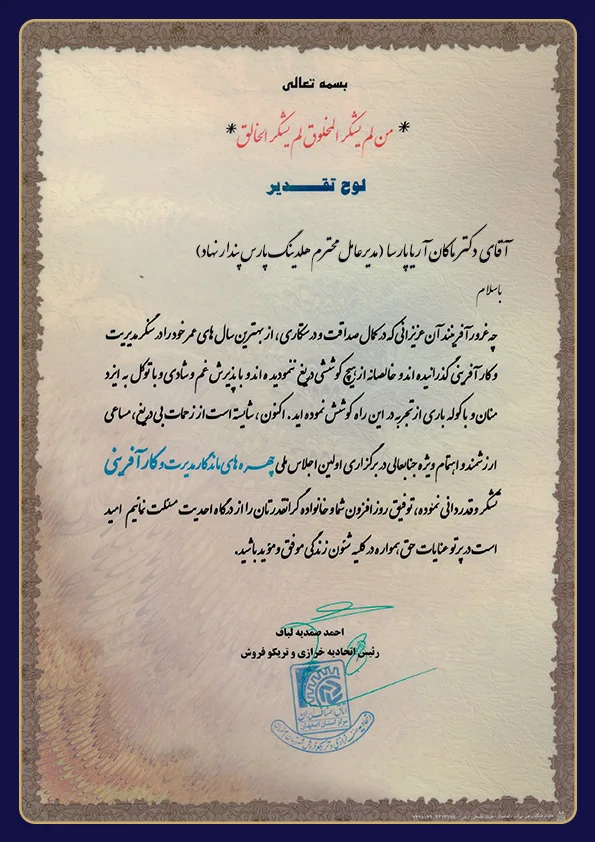 بسمه تعالی
* من لم یشکر المخلوق لم یشکر الخالق *
لوح تقدیر
آقای دکتر ماکان آریاپارسا (مدیرعامل محترم هلدینگ پارس پندار نهاد)
باسلام
چه غرورآفرینند آن عزیزانی که در کمال صداقت و درستکاری، از بهترین سال های عمر خود را در سنگر مدیریت
و کارآفرینی گذرانیده اند و خالصانه از هیچ کوششی دریغ ننمودیده اند و با پذیرش غم و شادی و با توکل به ایزد
منان و با کوله باری از تجربه در این راه کوشش نموده اید. اکنون، شایسته است از زحمات بی دریغ، مساعی
ارزشمند و اهتمام ویژه جنابعالی در برگزاری اولین اجلاس ملی چهره های ماندگار مدیریت و کارآفرینی
تشکر و قدردانی نموده، توفیق روز افزون شما و خانواده گرانقدرتان را از درگاه احدیت مسئلت نمائیم امید
است در پرتو عنایات حق همواره در کلیه شئون زندگی موفق و مؤید باشید.
احمد صمدیه لباف
رئیس اتحادیه خرازی و تریکو فروش
اتاق اصناف ایران
مرکز استان اصفهان